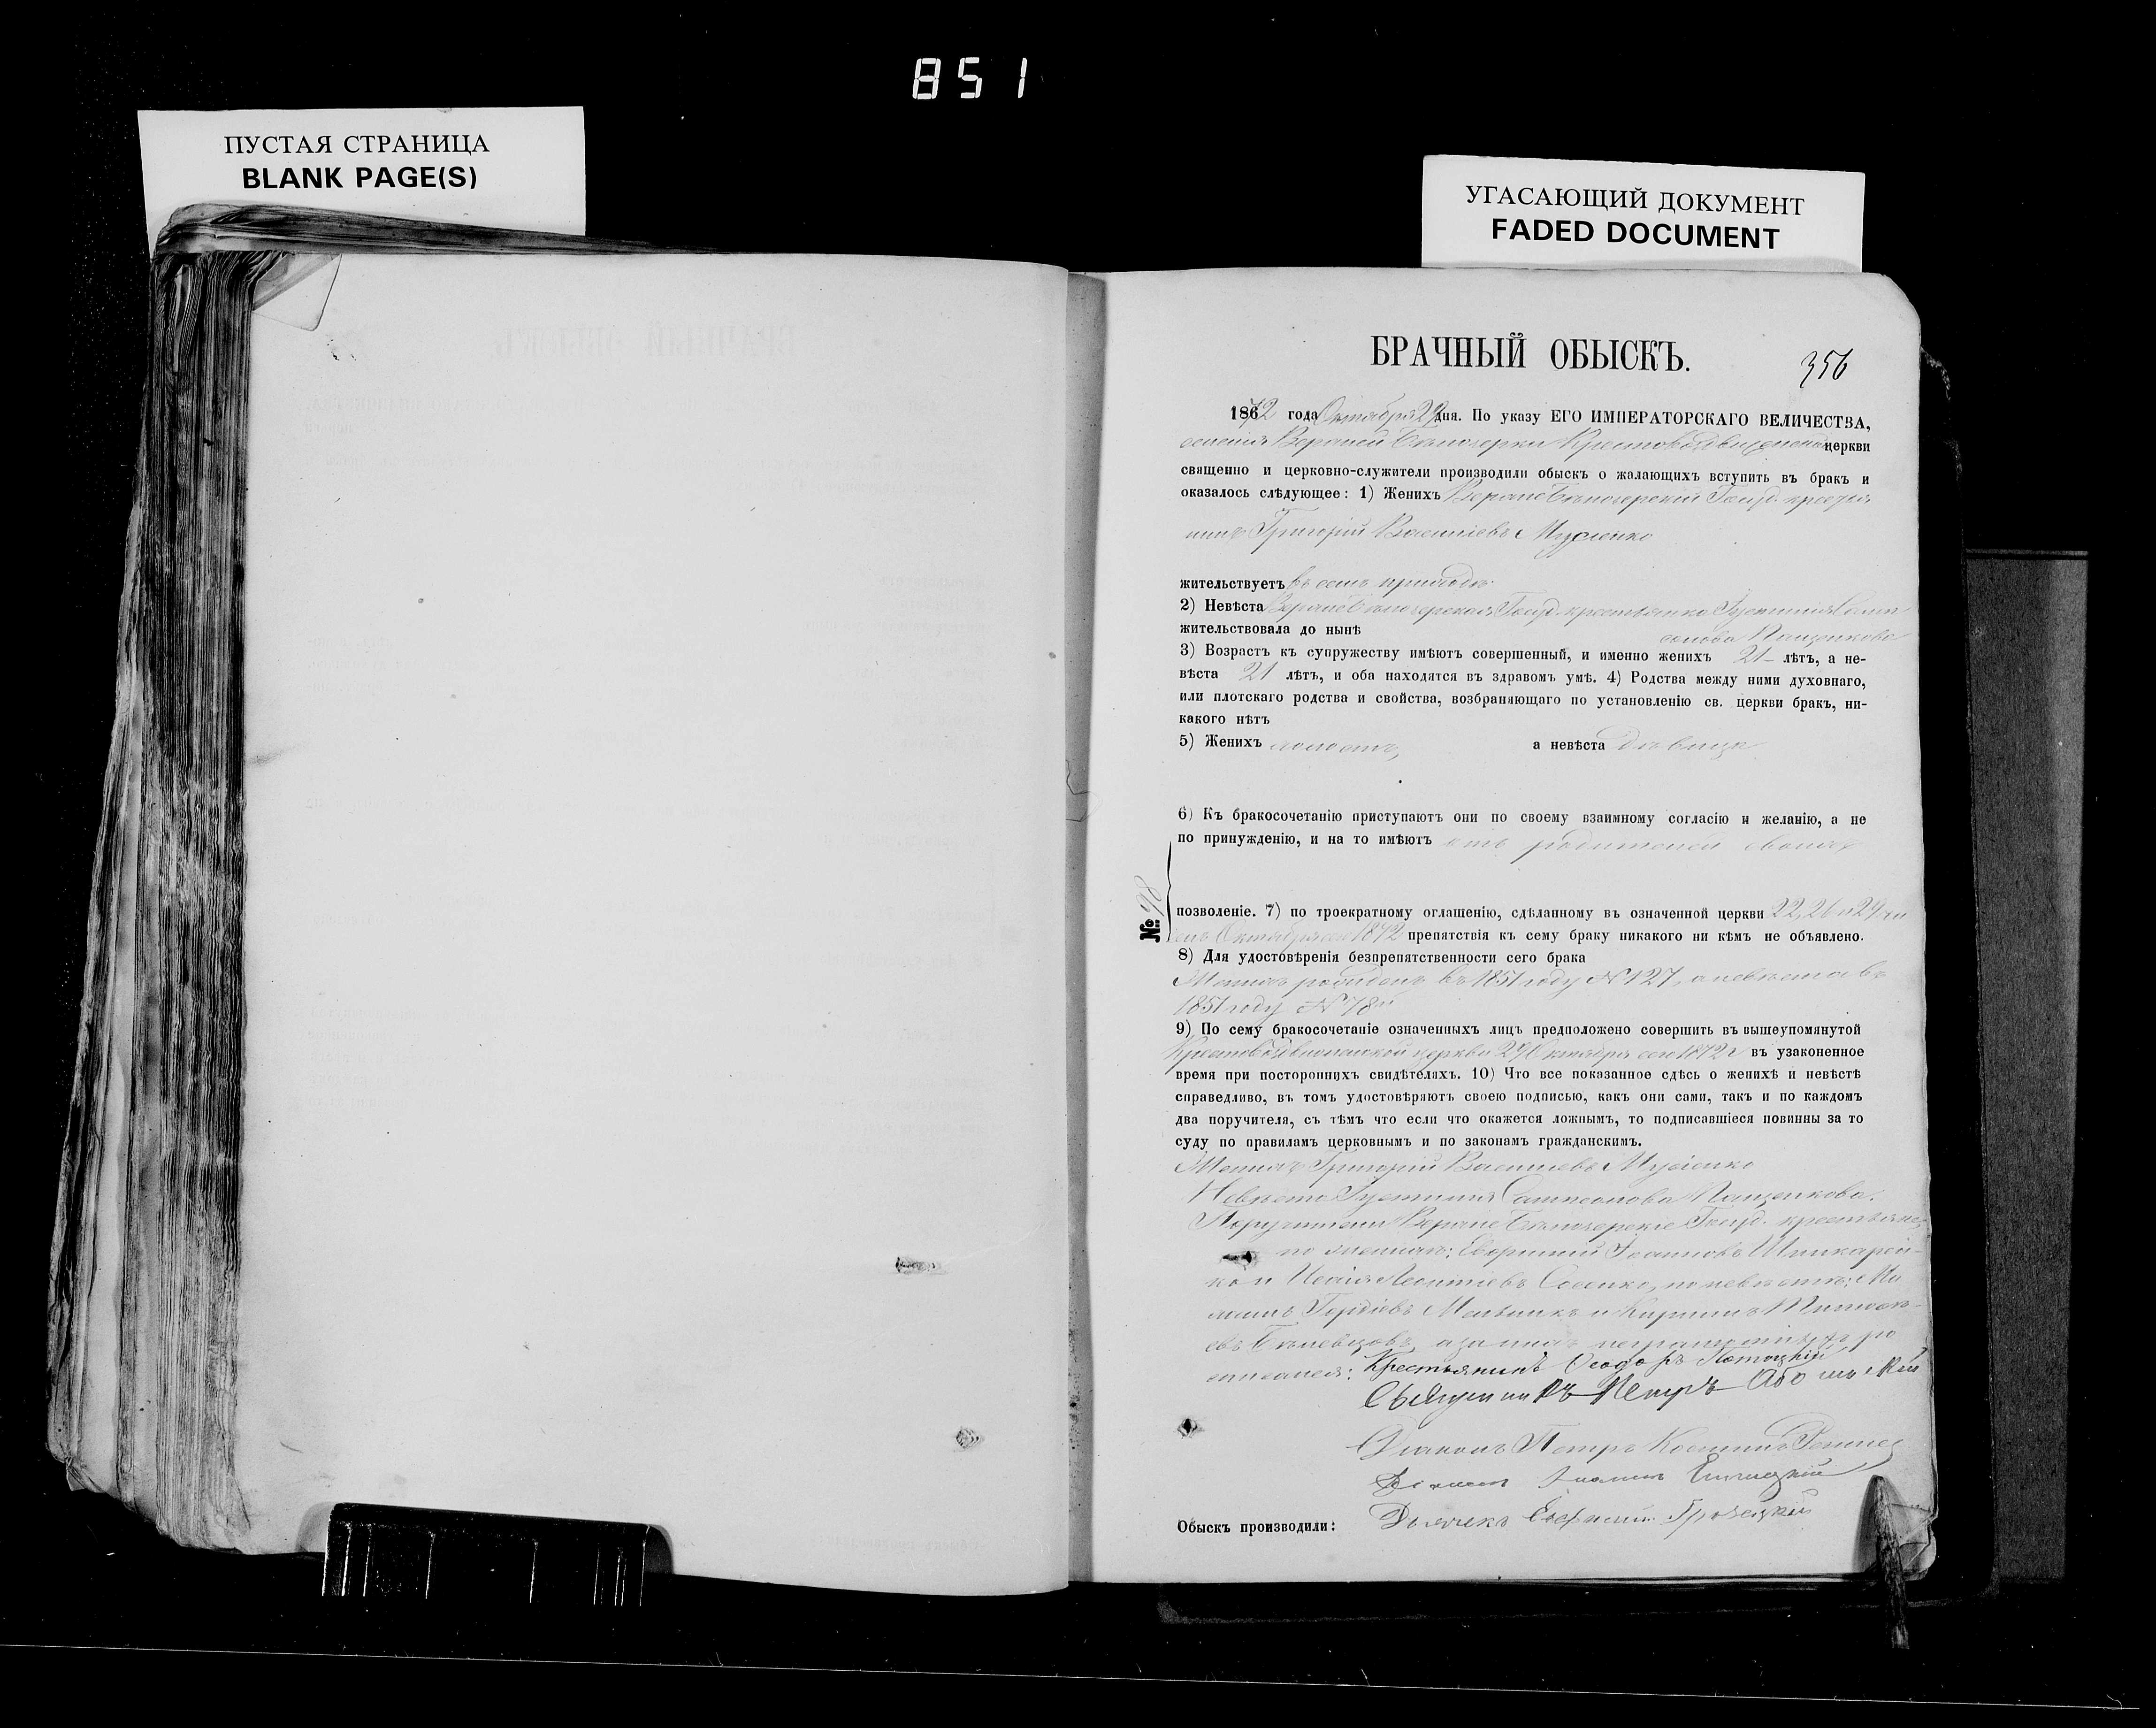 851
ПУСТАЯ СТРАНИЦА
BLANK PAGE(S)
УГАСАЮЩИЙ ДОКУМЕНТ
FADED DOCUMENT
БРАЧНЫЙ ОБЫСКЪ.
356
1872 года Октября 29 дня. По указу ЕГО ИМПЕРАТОРСКАГО ВЕЛИЧЕСТВА,
селенія Верхней Бѣлозерки Крестовоздвиженской церкви
священно и церковно-служители производили обыскъ о жалающихъ вступить въ бракъ и
оказалось слѣдующее: 1) Женихъ Верхнебѣлозерскій Госуд. крестья
нинъ Григорій Васильевъ Мусіенко
жительствуетъ въ семъ приходѣ
2) Невѣста Верхнебѣлозерская Госуд. крестьянка Іустинія Самп
жительствовала до нынѣ сонова Пащенкова
3) Возрастъ къ супружеству имѣютъ совершенный, и именно женихъ 21 лѣтъ, а не-
вѣста 21 лѣтъ, и оба находятся въ здравомъ умѣ. 4) Родства между ними духовнаго,
или плотскаго родства и свойства, возбраняющаго по установленію св. церкви бракъ, ни-
какого нѣтъ
5) Женихъ холостъ, а невѣста дѣвица
6) Къ бракосочетанію приступаютъ они по своему взаимному согласію и желанію, а не
по принужденію, и на то имѣютъ отъ родителей своихъ
№ 98
позволеніе. 7) по троекратному оглашенію, сдѣланному въ означенной церкви 22, 26 и 29 чи
селъ Октября сего 1872 препятствія къ сему браку никакого ни кѣмъ не объявлено.
8) Для удостовѣренія безпрепятственности сего брака
Женихъ родился въ 1851 году № 127, а невѣста въ
1851 году № 78й
9) По сему бракосочетаніе означенныхъ лицъ предположено совершить въ вышеупомянутой
Крестовоздвиженской церкви 29 Октября сего 1872 г. въ узаконенное
время при постороннихъ свидѣтеляхъ. 10) Что все показанное сдѣсь о женихѣ и невѣстѣ
справедливо, въ томъ удостовѣряютъ своею подписью, какъ они сами, такъ и по каждомъ
два поручителя, съ тѣмъ что если что окажется ложнымъ, то подписавшіеся повинны за то
суду по правиламъ церковнымъ и по законамъ гражданскимъ.
Женихъ Григорій Васильевъ Мусіенко
Невѣста Іустинія Сампсонова Пащенкова.
Поручители Верхнебѣлозерскіе Госуд. крестьяне
по женихѣ: Іоанновъ
ко и Исаія Леонтіевъ по невѣстѣ: Ма
Гордіевъ Мельникъ и Кириллъ
евъ а за нихъ неграмотныхъ ро
списался: Крестьянинъ Ѳеодоръ
Священникъ Петръ
Діаконъ Петръ Космичъ
Іоаннъ
Обыскъ производили: Дьячекъ Евфимій